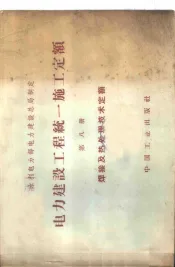 水利电力部电力建设总局制定
电力建設工程統一施工定額
第八册
焊接及热处理技术定額
中国工业出版社